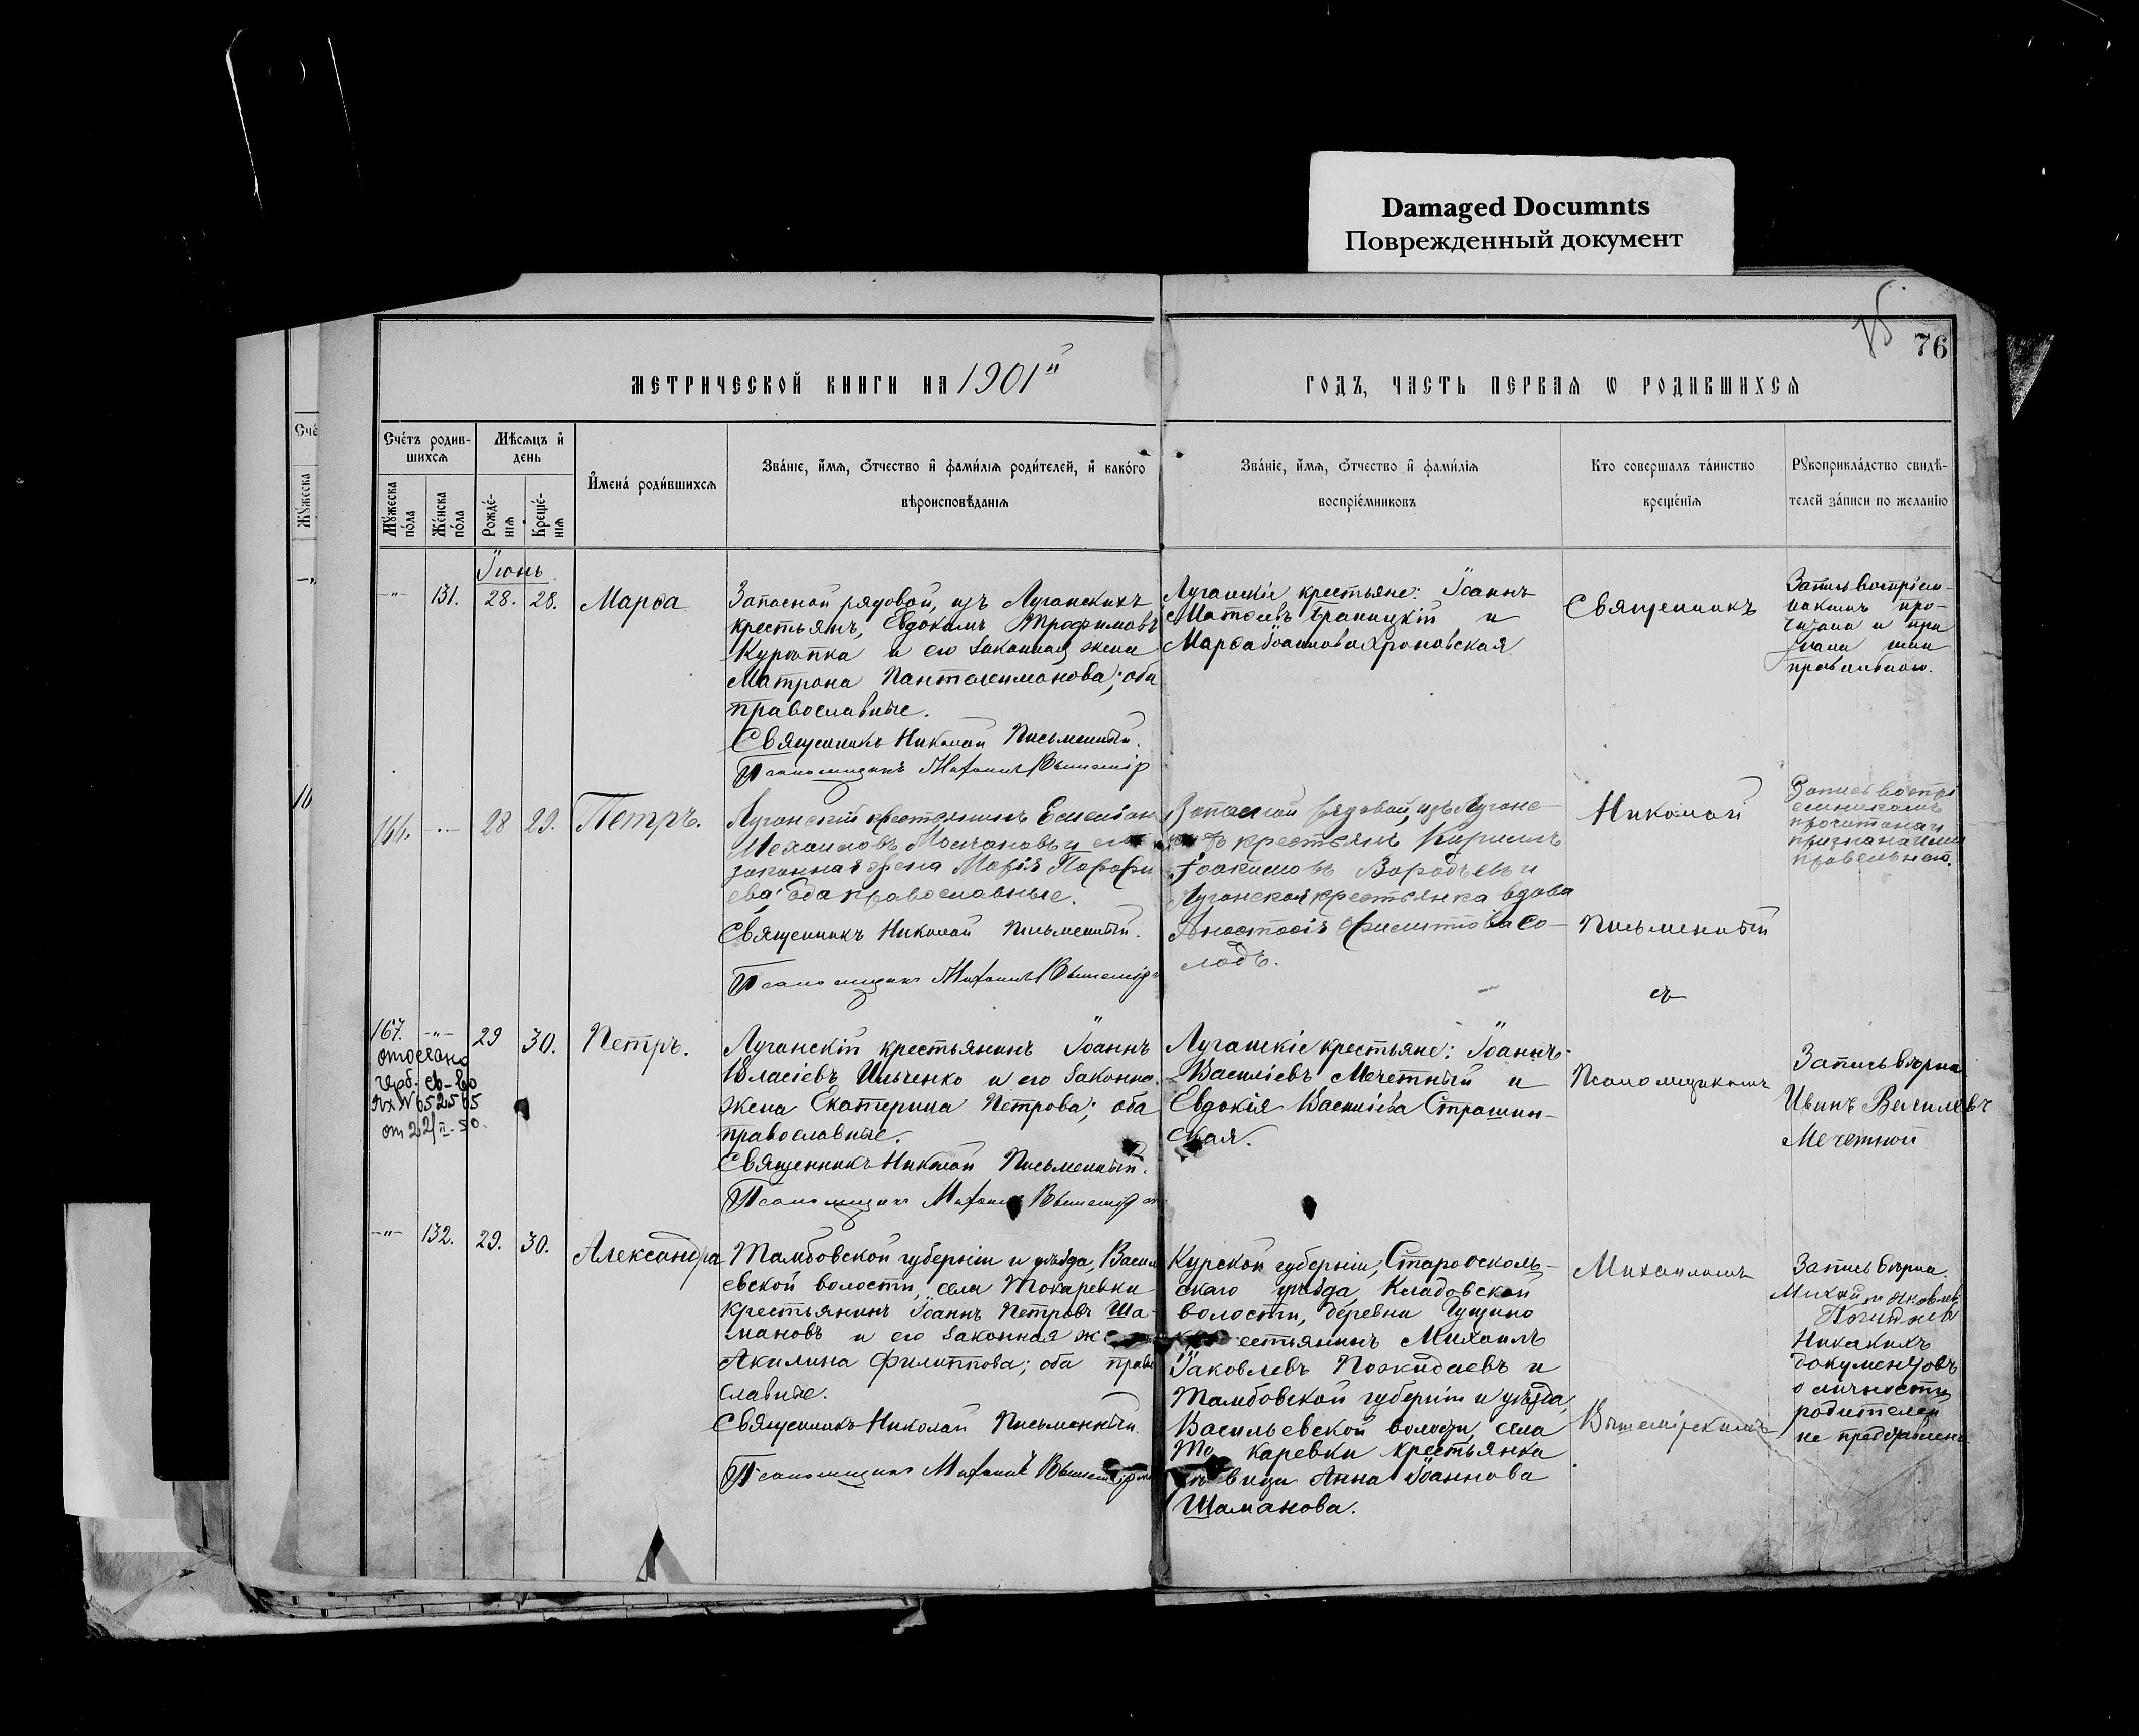 Damaged Documnts
Поврежденный документ
76
МЕТРИЧЕСКОЙ КНИГИ НА 1901й
ГОДЪ, ЧАСТЬ ПЕРВАѦ Ѡ РОДИВШИХСѦ
Счéтъ родив-
шихсѧ
Мꙋ́жеска
пóла
Жéнска
пóла
Мѣ́сѧцъ и҆
день
Рождé-
нїѧ
Крещé-
нїѧ
И҆менá роди́вшихсѧ
Звáнїе, и҆́мѧ, ѻ҆́тчество и҆ фами́лїѧ роди́телей, и҆ какóго
вѣроисповѣ́данїѧ
Звáнїе, и҆́мѧ, ѻ҆́тчество и҆ фами́лїѧ
воспрїéмниковъ
Кто совершалъ тáинство
крещéнїѧ
Рꙋкоприклáдство свидѣ́-
телей зáписи по желáнїю
Іюнь
-"- 131. 28. 28. Марѳа
Запасной рядовой, изъ Луганскихъ
крестьянъ, Евдокимъ Трофимовъ
Куропка и его законная жена
Матрона Пантелеимонова; оба
православные.
Священникъ Николай Письменный.
Псаломщикъ Михаилъ Вышемір
Луганскіе крестьяне: Іоаннъ
Матѳеевъ Границкій и
Марѳа Іоаннова Хроновская
Священникъ
Запись воспріем-
никами про-
читана и при
знана ими
правильною.
166. -"- 28 29. Петръ.
Луганскій крестьянинъ Емеліан
Михаиловъ Молчановъ и его
законная жена Марія Порфи
ева; оба православные.
Священникъ Николай Письменный.
Псаломщикъ Михаилъ Вышемір
Запасной рядовой, изъ Луганс-
крестьянъ Кириллъ
Іоакимовъ Воробьевъ и
Луганская крестьянка вдова
Анастасія Со-
лодъ.
Николай
Письменный
съ
Запись воспрі
емниками
прочитана и
признана ими
правельной.
167. -"- 29 30. Петръ.
отослано
герб. св-во
от 22/II-50.
Луганскій крестьянинъ Іоаннъ
Власіевъ Ильченко и его законна.
жена Екатерина Петрова; оба
православные.
Священникъ Николай Письменный.
Псаломщикъ Михаилъ Вышемір
Луганскіе крестьяне: Іоаннъ
Василіевъ Мечетный и
Евдокія Василіева Страшин-
ская.
Псаломщикомъ
Запись вѣрна
Иванъ Василевъ
Мечетной
-"- 132. 29. 30. Александра
Тамбовской губерніи и уѣзда, Васил
евской волости, села Токаревки
крестьянинъ Іоаннъ Петровъ Ша-
мановъ и его законная же
Акилина Филиппова; оба право
славные.
Священникъ Николай Письменный.
Псаломщикъ Михаилъ Вышемір
Курской губерніи, Староосколь-
скаго уѣзда, Кладовской
волости, деревни Гущино
крестьянинъ Михаилъ
Іаковлевъ Поокидаевъ и
Тамбовской губерніи и уѣзда,
Васильевской волости, села
То каревки крестьянка
дѣвица Анна Іоаннова
Шаманова.
Михаиломъ
Вышемірскимъ
Запись вѣрна.
Михаил Яковлев
Никакихъ
документовъ
о личности
родителей
не представлено